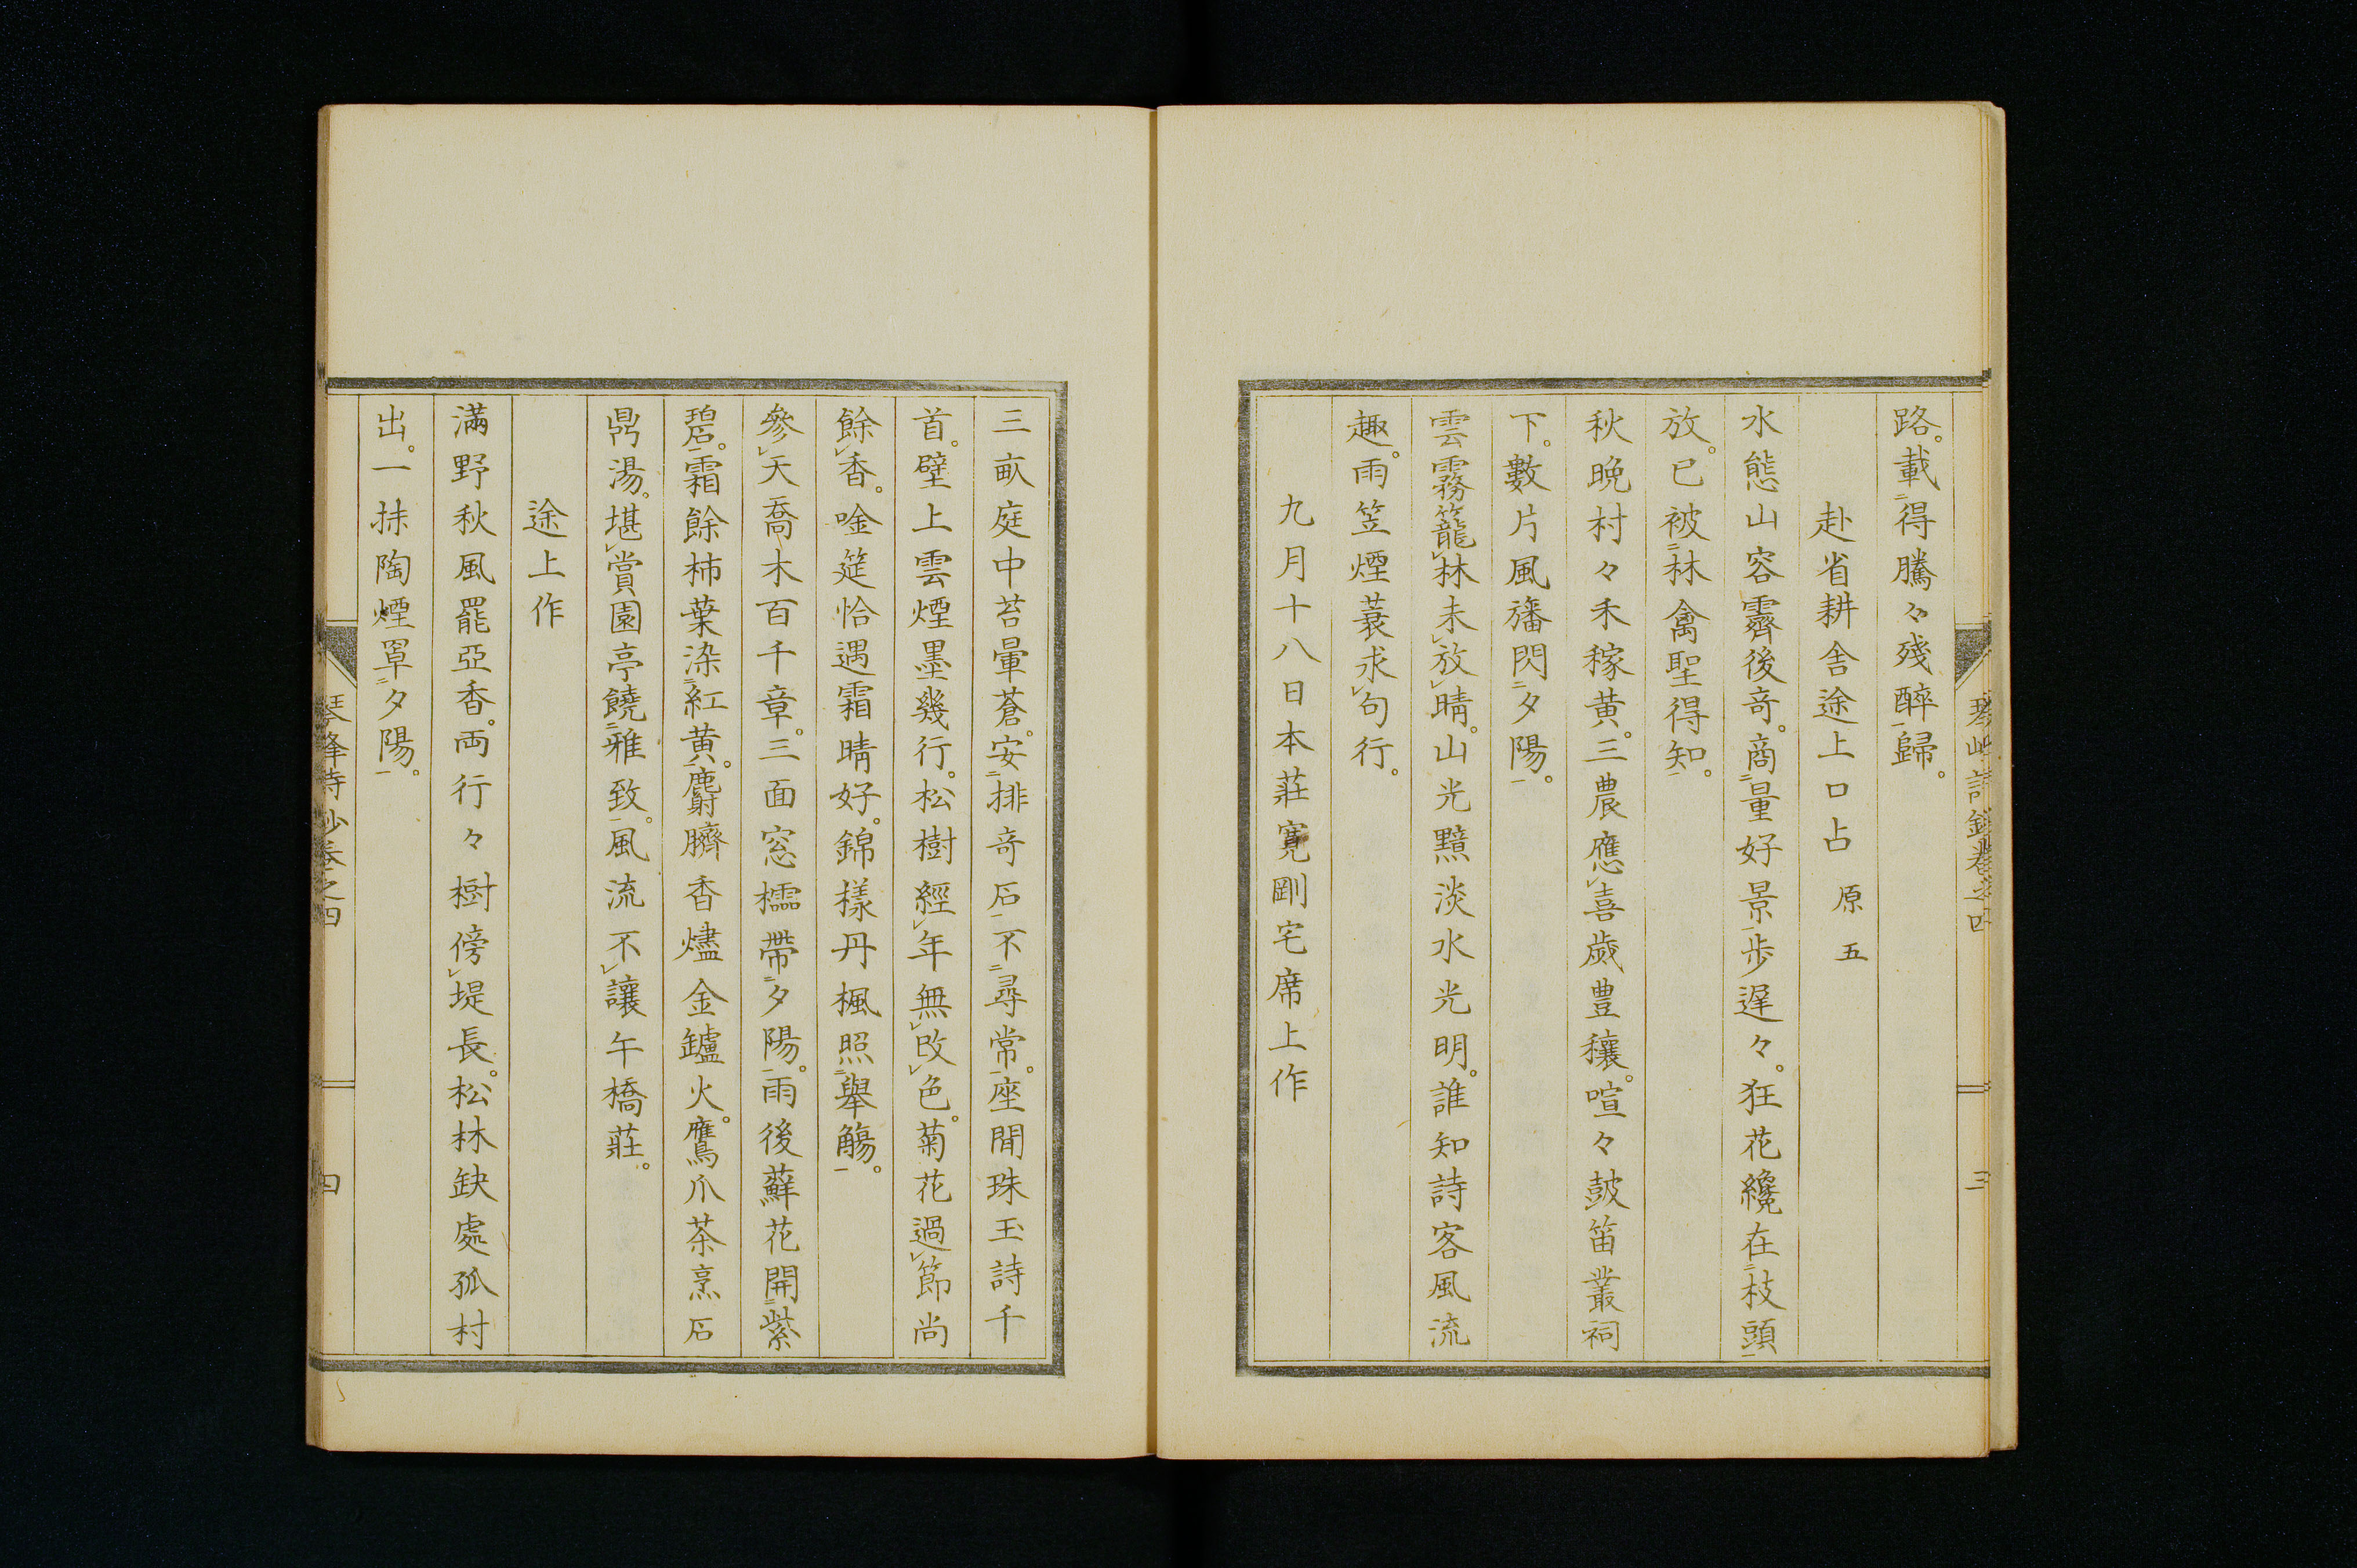 路。載二得騰々殘醉一歸。
赴省耕舍途上口占 原五
水態山容霽後奇。商二量好景一步遲々。狂花纔在二枝頭一
放。已被二林禽聖得知一。
秋晩村々禾稼黄。三農應レ喜歲豊穰。喧々皷笛叢祠
下。數片風旛閃二夕陽一。
雲霧籠レ林未レ放レ晴。山光黯淡水光明。誰知詩客風流
趣。雨笠煙蓑求レ句行。
九月十八日本莊寬剛宅席上作
三畝庭中苔暈蒼。安二排奇石一不二尋常一。座聞珠玉詩千
首。壁上雲煙墨幾行。松樹經レ年無レ改レ色。菊花過レ節尚
餘レ香。唫筵恰遇霜晴好。錦様丹楓照二擧觴一。
參レ天喬木百千章。三面窓櫺帶二夕陽一。雨後蘚花開二紫
碧一。霜餘柿葉染二紅黄一。麝臍香燼金鑪火。鷹爪茶烹石
鼎湯。堪レ賞園亭饒二雅致一。風流不レ讓午橋莊。
途上作
滿野秋風罷亞香。両行々樹傍レ堤長。松林缺處孤村
出。一抹陶煙罩二夕陽一。
琴峰詩鈔卷之四
四
三